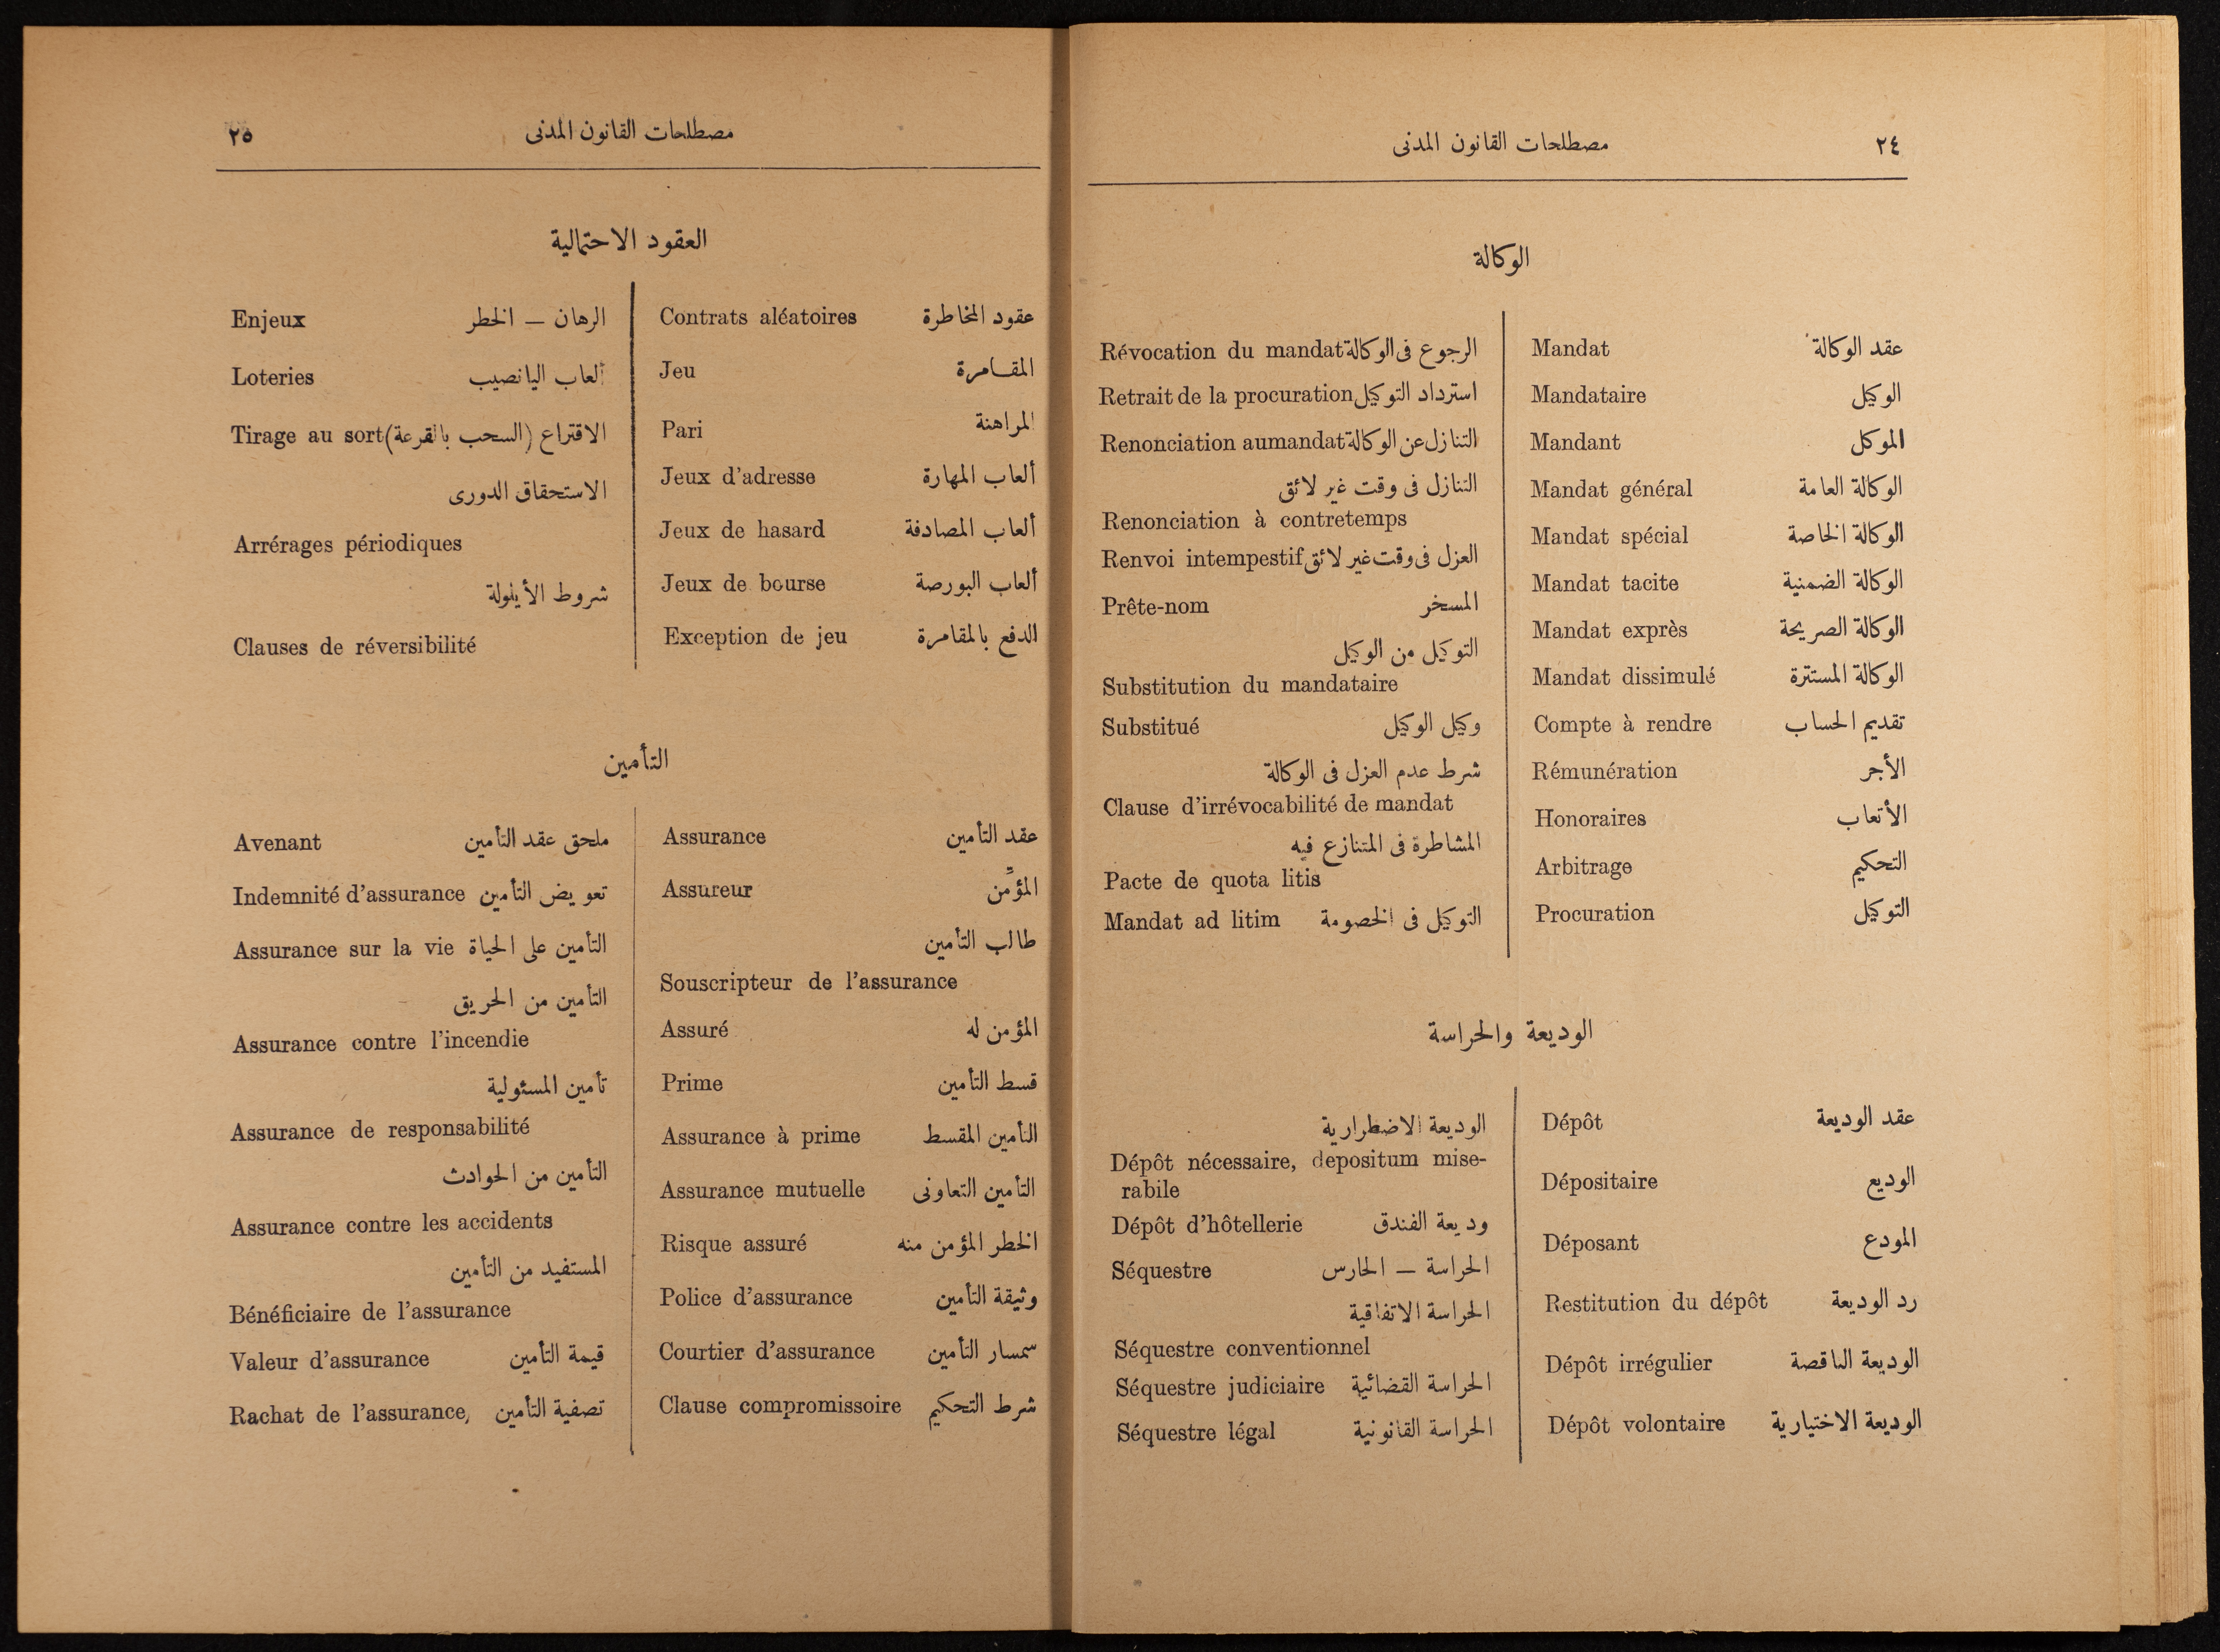 ٢٤ مصطلحات القانون المدنى
الوكالة
عقد الوكالة Mandat
الوكيل Mandataire
الموكل Mandant
الوكالة العامة Mandat général
الوكالة الخاصة Mandat spécial
الوكالة الضمنية Mandat tacite
الوكالة الصريحة Mandat exprès
الوكالة المستترة Mandat dissimulé
تقديم الحساب Compte à rendre
الأجر Rémunération
الأتعاب Honoraires
التحكيم Arbitrage
التوكيل Procuration
الرجوع فى الوكالة Révocation du mandat
استرداد التوكيل Retrait de la procuration
التنازل عن الوكالة Renonciation au mandat
التنازل فى وقت غير لائق
Renonciation à contretemps
العزل فى وقت غير لائق Renvoi intempestif
المسخر Prête-nom
التوكيل من الوكيل
Substitution du mandataire
وكيل الوكيل Substitué
شرط عدم العزل فى الوكالة
Clause d'irrévocabilité de mandat
المشاطرة فى المتنازع فيه
Pacte de quota litis
التوكيل فى الخصومة Mandat ad litim
الوديعة والحراسة
عقد الوديعة Dépôt
الوديع Dépositaire
المودع Déposant
رد الوديعة Restitution du dépôt
الوديعة الناقصة Dépôt irrégulier
الوديعة الاختيارية Dépôt volontaire
الوديعة الاضطرارية
Dépôt nécessaire, depositum mise-
rabile
وديعة الفندق Dépôt d'hôtellerie
الحراسة — الحارس Séquestre
الحراسة الاتفاقية
Séquestre conventionnel
الحراسة القضائية Séquestre judiciaire
الحراسة القانونية Séquestre légal
مصطلحات القانون المدنى ٢٥
العقود الاحتمالية
عقود المخاطرة Contrats aléatoires
المقامرة Jeu
المراهنة Pari
ألعاب المهارة Jeux d'adresse
ألعاب المصادفة Jeux de hasard
ألعاب البورصة Jeux de bourse
الدفع بالمقامرة Exception de jeu
الرهان — الخطر Enjeux
ألعاب اليانصيب Loteries
الاقتراع (السحب بالقرعة) Tirage au sort
الاستحقاق الدورى
Arrérages périodiques
شروط الأيلولة
Clauses de réversibilité
التأمين
عقد التأمين Assurance
المؤمِّن Assureur
طالب التأمين
Souscripteur de l'assurance
المؤمن له Assuré
قسط التأمين Prime
التأمين المقسط Assurance à prime
التأمين التعاونى Assurance mutuelle
الخطر المؤمن منه Risque assuré
وثيقة التأمين Police d'assurance
سمسار التأمين Courtier d'assurance
شرط التحكيم Clause compromissoire
ملحق عقد التأمين Avenant
تعويض التأمين Indemnité d'assurance
التأمين على الحياة Assurance sur la vie
التأمين من الحريق
Assurance contre l'incendie
تأمين المسئولية
Assurance de responsabilité
التأمين من الحوادث
Assurance contre les accidents
المستفيد من التأمين
Bénéficiaire de l'assurance
قيمة التأمين Valeur d'assurance
تصفية التأمين Rachat de l'assurance,